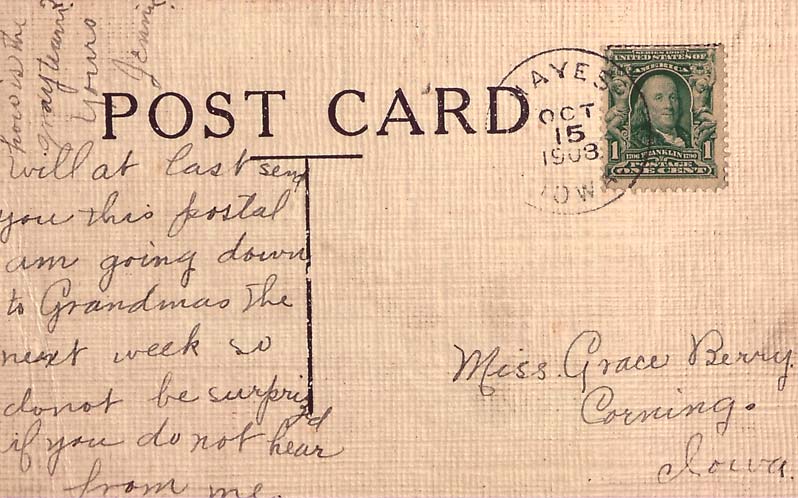 POST CARD
will at last send
you this postal
am going down
to Grandmas the
next week so
donot be surprized
if you do not hear
from me.
how is the
gray team?
Yours
Jennie
HAYES
OCT
15
1908
IOWA
SERIES 1902
UNITED STATES OF
AMERICA
1 1706 FRANKLIN 1790 1
POSTAGE
ONE CENT
Miss. Grace Berry.
Corning.
Iowa.